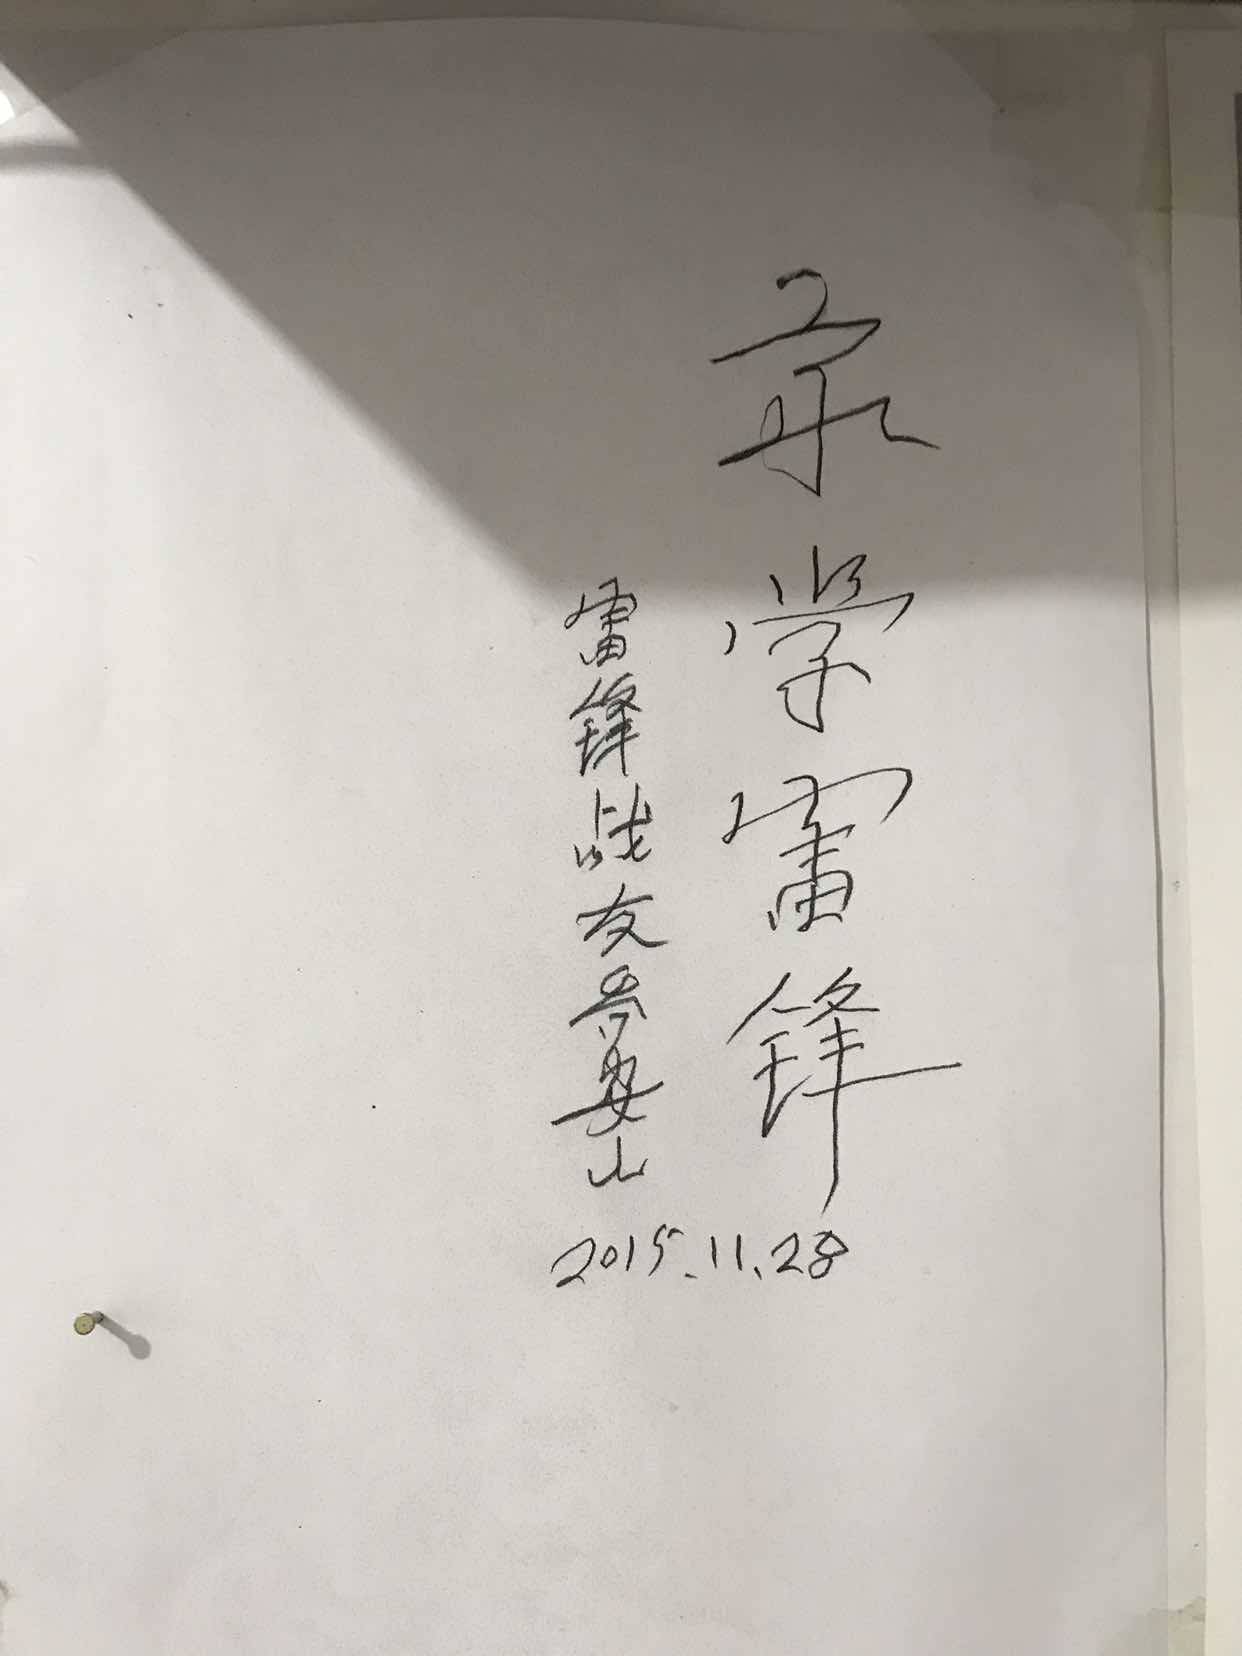 永学雷锋
雷锋战友乔安山
2015.11.28